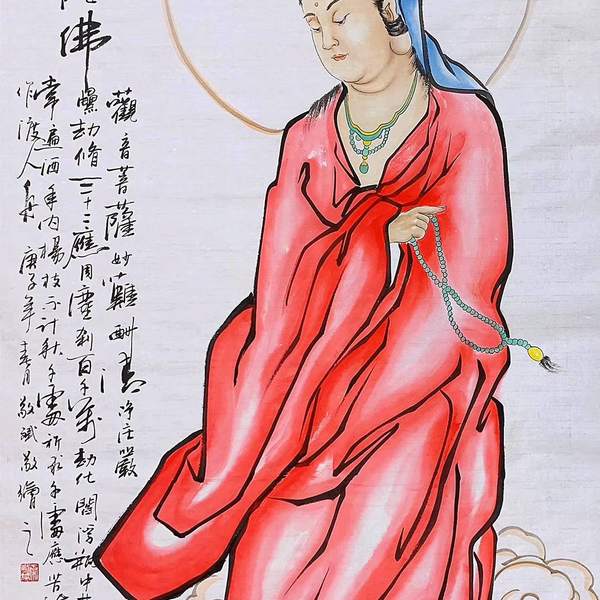 佛
觀音菩薩妙難酬清淨莊嚴
螺劫脩三十三應周塵刹百千萬劫化閻浮瓶中
常遍洒手內楊枝不計秋千處祈求千處應苦
作渡人舟庚子年春月敬斌敬繪之